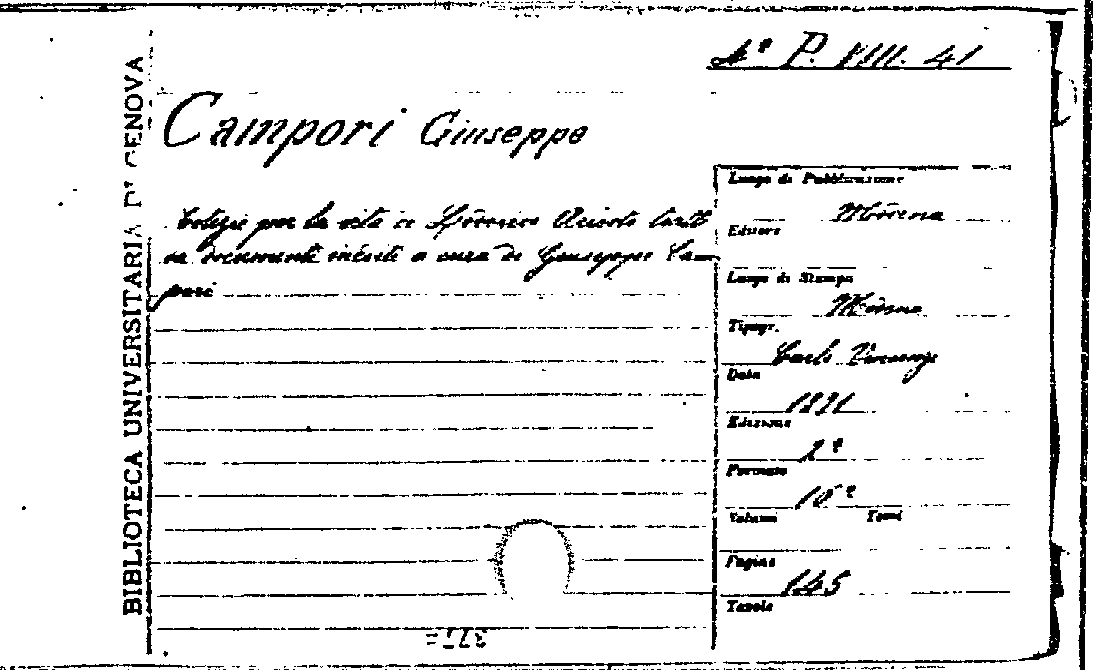 Nº P. VIII. 41
BIBLIOTECA UNIVERSITARIA DI GENOVA
Campori Giuseppe
Notizie per la vita di Lodovico Ariosto tratte
da documenti inediti a cura di Giuseppe Cam-
pori
Luogo di Pubblicazione
Modena
Editore
Luogo di Stampa
Modena
Tipogr.
Carlo Vincenzi
Data
1871
Edizione
2ª
Formato
16º
Volume Tomi
Pagine
145
Tavole